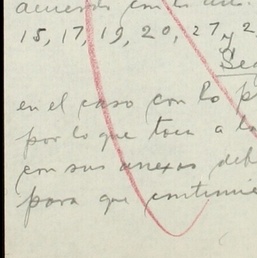 acuerdo con la
15, 17, 19, 20, 27 y 2
Seg
en el caso con lo p
por lo que toca a la
con sus anexas deb
para que continúe